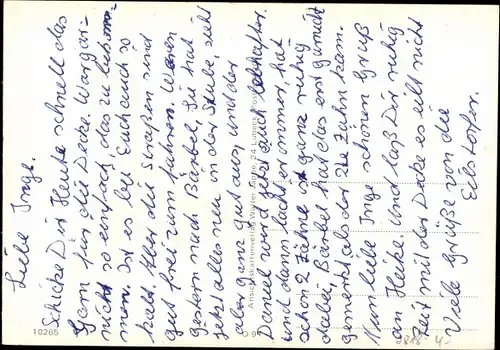 Liebe Inge.
Schicke Dir Heute schnell das
Garn für die Decke. War gar
nicht so einfach, das zu bekom-
men. Ist es bei Euch auch so
kalt. Aber die Straßen sind
gut frei zum fahren. Waren
gestern nach Bärbel, Sie hat
jetzt alles neu in der Stube, sieht
aber ganz gut aus, und der
Daniel wird jetzt auch lebhafter.
und dann lacht er immer, hat
schon 2 Zähne ist ganz ruhig
dabei, Bärbel hat das erst gemerkt
gemerkt als der 2te Zahn kam.
Nun liebe Inge schönen Gruß
an Heike. Und laß Dir ruhig
Zeit mit der Decke es eilt nicht
Viele Grüße von die
Eilstorfer.
10265
Ansichtskartenverlag
24 Lübeck